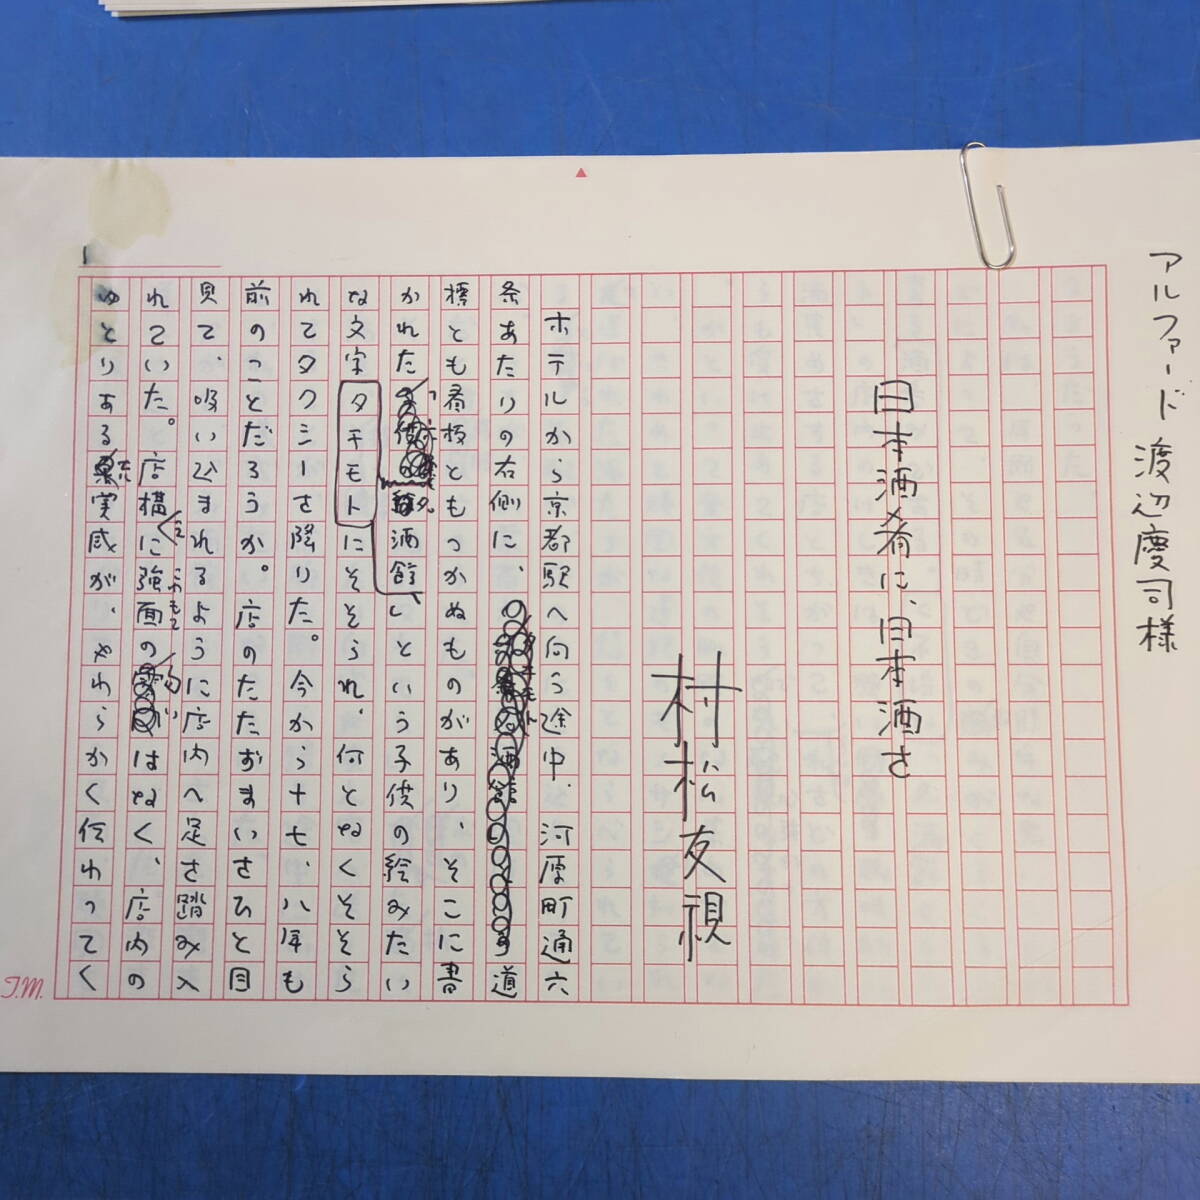 アルファード 渡辺慶司様
日本酒肴に、日本酒を
村松友視
ホテルから京都駅へ向う途中、河原町通六
条あたりの右側に、道
標とも看板ともつかぬものがあり、そこに書
かれた酒館」という子供の絵みたい
な文字タキモトにそそられ、何となくそそら
れてタクシーを降りた。今から十七、八年も
前のことだろうか。店のたたずまいをひと目
見て、吸い込まれるように店内へ足を踏み入
れていた。店構えに強面の匂いはなく、店内の
ゆとりある充実感が、やわらかく伝わってく
こわもて
1
T.M.